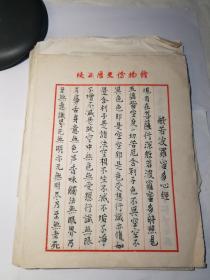 陝西歷史博物館
般若波羅蜜多心經
觀自在菩薩行深般若波羅蜜多時照見
五蘊皆空度一切苦厄舍利子色不異空空不
異色色即是空空即是色受想行識亦復如
是舍利子是諸法空相不生不滅不垢不淨
不增不減是故空中無色無受想行識無眼
耳鼻舌身意無色聲香味觸法無眼界乃
至無意識界無無明亦無無明盡乃至無老死